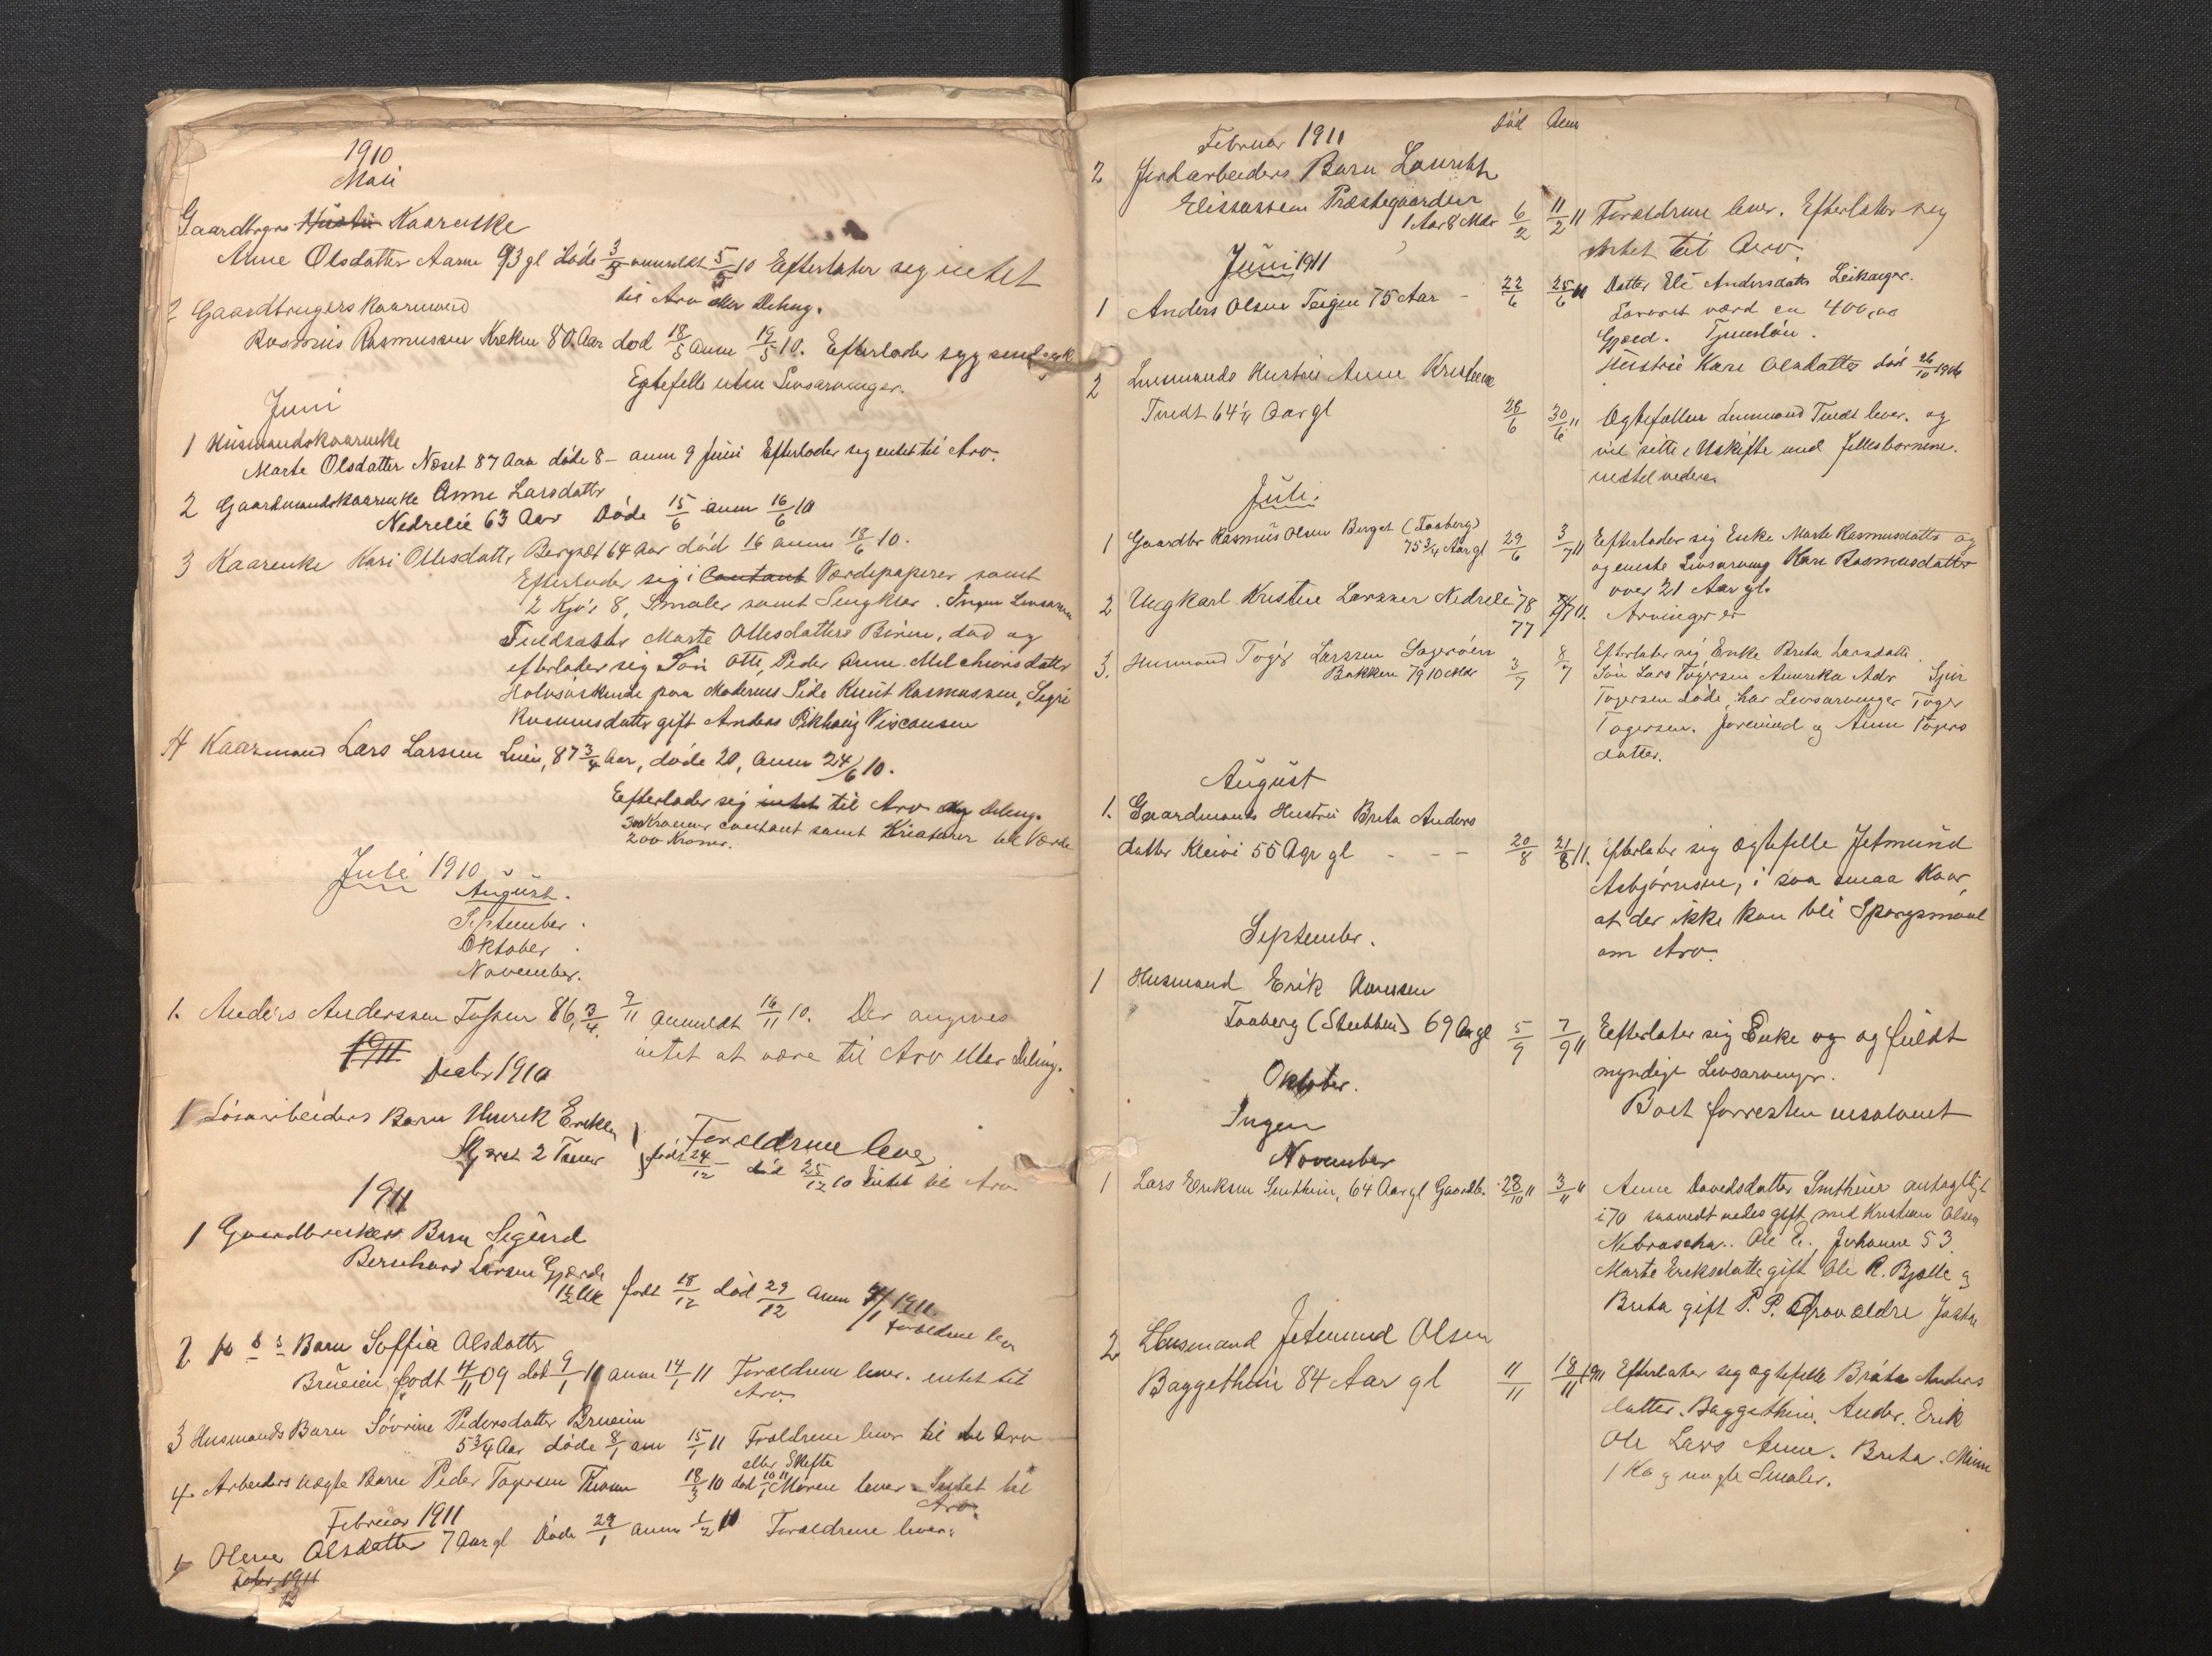 1910
Mai
Gaardbrgrs Hustru Kaarenke
Anne Olsdatter Aarne 93 gl døde 3/5 anmeldt 5/5 10 Efterlater seg intet
til Arv eller Deling.
2 Gaardbrugers kaarmand
Rasmus Rasmussen Kreken 80 Aar død 18/5 Anm 19/5 10. Efterlader seg
Egtefelle uten Livsarvinger.
Juni
1 Husmandskaarenke
Marte Olsdatter Næset 87 Aar døde 8 - anm 9 Juni Efterlader seg intet til Arv.
2 Gaardmandskaarenke Anne Larsdatter
Nedrelie 63 Aar Døde 15/6 anm 16/6 10
3 Kaarenke Kari Ollesdattr Bergset 64 Aar død 16 anm 18/6 10.
Efterlader sig i Contant Værdipapirer samt
2 Kjør 8, Smaler samt Sengklær. Ingen Livsarvin
Fuldsøster Marte Ollesdatters Børn, død og
efterlader sig Søn Otte, Peder Anne Melchiorsdatter
Halvsøskende paa Moderens Side Knut Rasmussen, Sigri
Rasmusdatter gift Anders
4 Kaarmand Lars Larsen Lien, 87 3/4 Aar, døde 20, Anm 24/6 10.
Efterlader sig intet til Arv og Deling.
300 Kroner contant samt Kreaturer til Værdi
200 Kroner.
Juli 1910
August.
September.
Oktober.
November.
1. Anders Anderssen Fossen 86, 3/4 9/11 anmeldt 16/11 10. Der angives
intet at være til Arv eller Deling.
1911
Decbr 1910
1 Løsarbeiders Barn Henrik Eriksen
2 Timer født 24/12 død 25/12 10 Intet til Arv.
Forældrene lever
1911
1 Gaardbrukers Barn Sigurd
Bernhard Larsen Gjærde
1 1/2 Uk født 18/12 død 29/12 Anm 4/1 1911.
Forældrene lever
2 Barn Soffia Olsdattr
Brueien født 4/11 09 død 9/1 11 anm 14/1 11 Forældrene lever. intet til
Arv.
3 Husmands Barn Søvrine Pedersdatter Brueien
5 3/4 Aar døde 8/1 anm 15/1 11 Forældrene lever til Arv
eller Skifte
4. Arbeiders uægte Barn Peder Tøgersen 18/3 10 død 10/1 11 Moren lever. Intet til
Arv.
Februar 1911
1 Oline Olsdatter 7 Aar gl Døde 29/1 anm 1/2 11 Forældrene lever.
Febr 1911
død Anm
Februar 1911
2 Jordarbeiders Barn Lauritz
Elisassen Præstegaarden
1 Aar 8 Mdr 6/2 11/2 11 Forældrene lever. Efterlater seg
intet til Arv.
Juni 1911
1 Anders Olsen Teigen 75 Aar - 22/6 25/6 11 Datter Eli Andersdatter Leikanger.
Løsøret værd ca 400,00
Gjæld. Tjenerløn.
Hustru Kari Olsdatter død 26/10 1906
2 Lensmands Hustru Anne Kristine
Tvedt 64 1/4 Aar gl 28/6 30/6 11 Ægtefællen Lensmand Tvedt lever. og
vil sitte i Uskifte med Fellesbørnene.
indtil videre
Juli.
1 Gaardbr Rasmus Olsen Berget (Faaberg)
75 3/4 Aar gl 29/6 3/7 11 Efterlader sig Enke Marte Rasmusdatter og
og eneste Livsarving Kari Rasmusdatter
over 21 Aar gl.
2 Ungkarl Kristen Larssen Nedrelie 78 Arvinger er
77
3. Husmand Tøger Larssen Søgrøien
Bakken 79 10 Mdr 3/7 8/7 Efterlater sig Enke Brita Larsdatter.
Søn Lars Tøgersen Amerika Adr Sjur
Tøgersen døde, har Livsarvinger Tøger
Tøgersen. Jørmund og Anne Tøgers
datter.
August
1. Gaardmands Hustru Brita Anders
datter Kleivi 55 Aar gl - - - 20/8 21/8 11. efterlater sig ægtefelle Jetmund
Asbjørnsen, i saa smaa Kaar,
at der ikke kan bli Spørgsmaal
om Arv.
September.
1 Husmand Erik Anensen
Faaberg (Stubben) 69 Aar gl 5/9 7/9 11 Eefterlater sig Enke og og fuldt
myndige Livsarvinger.
Boet forresten insolvent
Oktober.
Ingen
November
1 Lars Eriksen Snetthun, 64 Aar gl Gaardbr. 28/10 11 3/11 11 Anne Davedsdatter Snetthun antagelig
i 70 gift med Kristian Olsen
Nebraska. Ole E. Johanne 53.
Marte Eriksdatter gift Ole R. Bjelle og
Brita gift P. P. Jostedal
2 Husmand Jetmund Olsen
Baggethun 84 Aar gl 11/11 18/11 1911 Efterlater seg ægtefelle Brita Anders
datter. Baggethun. Ander. Erik
Ole Lars Anne. Brita.
1 Ko og nogle Smaler.